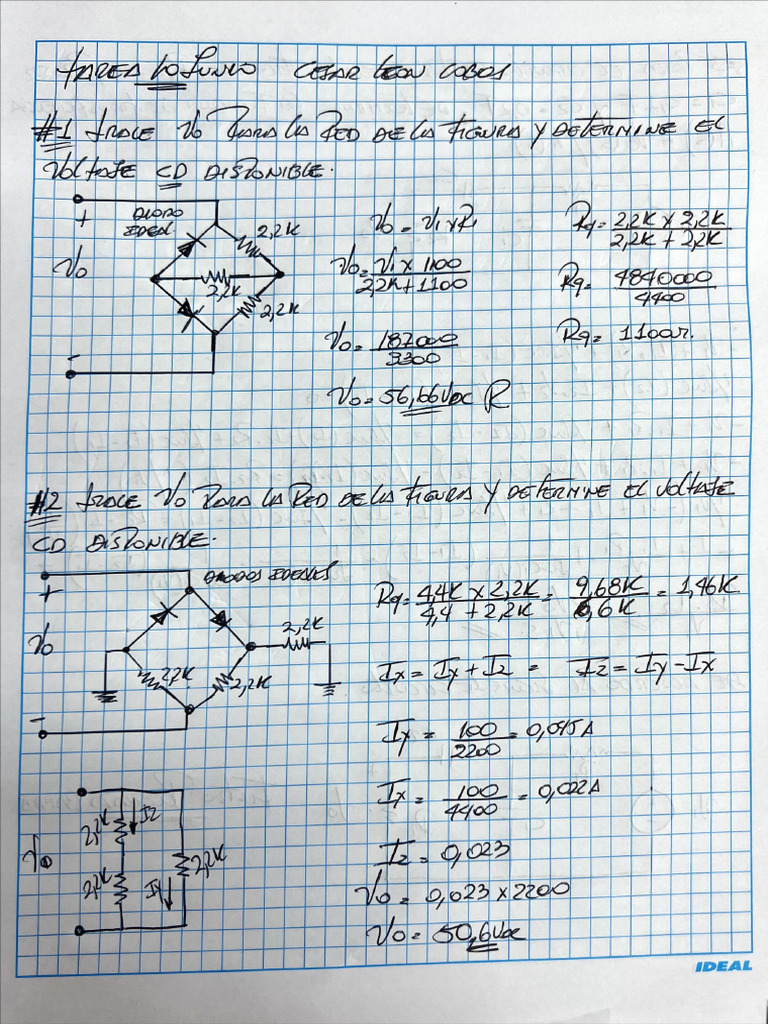 TAREA 10 JUNIO CESAR LEON COBOS
#1 TRACE Vo PARA LA RED DE LA FIGURA Y DETERMINE EL
VOLTAJE CD DISPONIBLE.
+
DIODO
IDEAL
2,2K
Vo
2,2K
2,2K
-
Vo = Vi x R1
Vo = Vi x 1100 / 2,2K + 1100
Vo = 187000 / 3300
Vo = 56,66Vdc R
Rq = 2,2K x 2,2K / 2,2K + 2,2K
Rq = 4840000 / 4400
Rq = 1100r.
#2 TRACE Vo PARA LA RED DE LA FIGURA Y DETERMINE EL VOLTAJE
CD DISPONIBLE.
+
DIODOS IDEALES
Vo
2,2K
2,2K
2,2K
-
Rq = 4,4K x 2,2K / 4,4 + 2,2K = 9,68K / 6,6K = 1,46K
Ix = Iy + Iz = Iz = Iy - Ix
Iy = 100 / 2200 = 0,045A
Ix = 100 / 4400 = 0,022A
Iz = 0,023
Vo = 0,023 x 2200
Vo = 50,6Vdc
2,2K
Iz
Vo
2,2K
2,2K
Iy
IDEAL